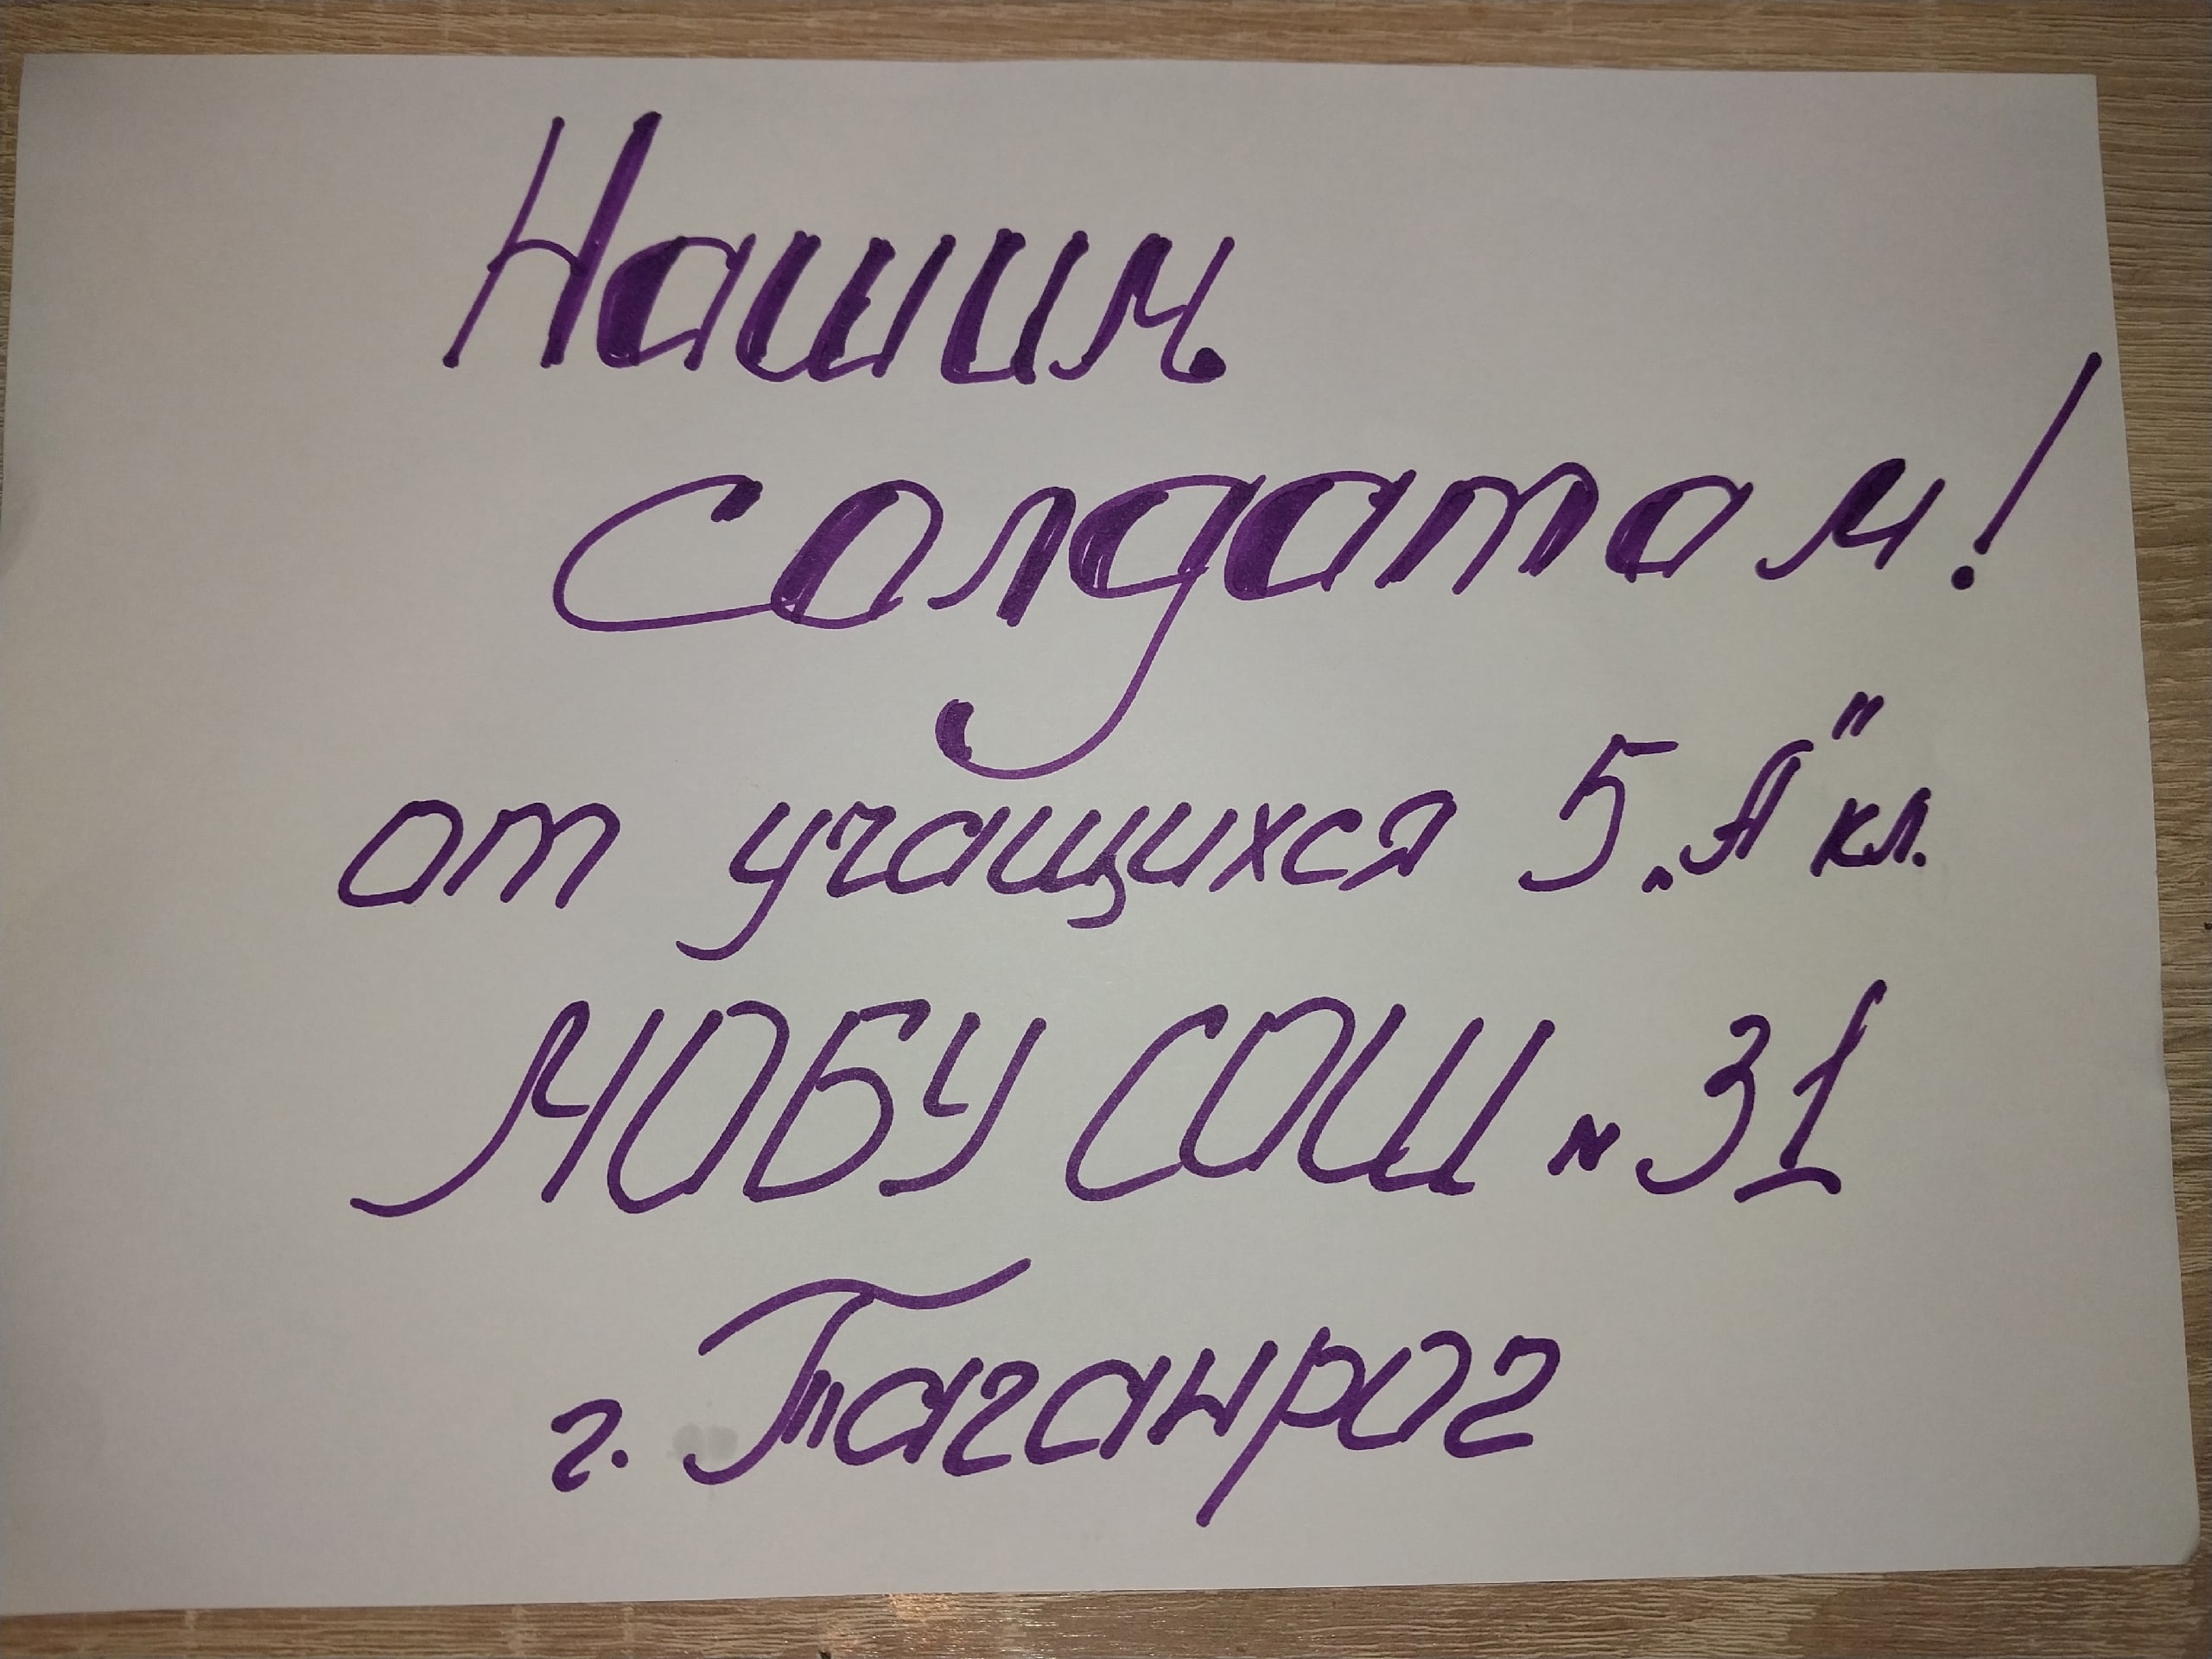 Нашим
солдатам!
от учащихся 5 „А" кл.
МОБУ СОШ № 31
г. Таганрог